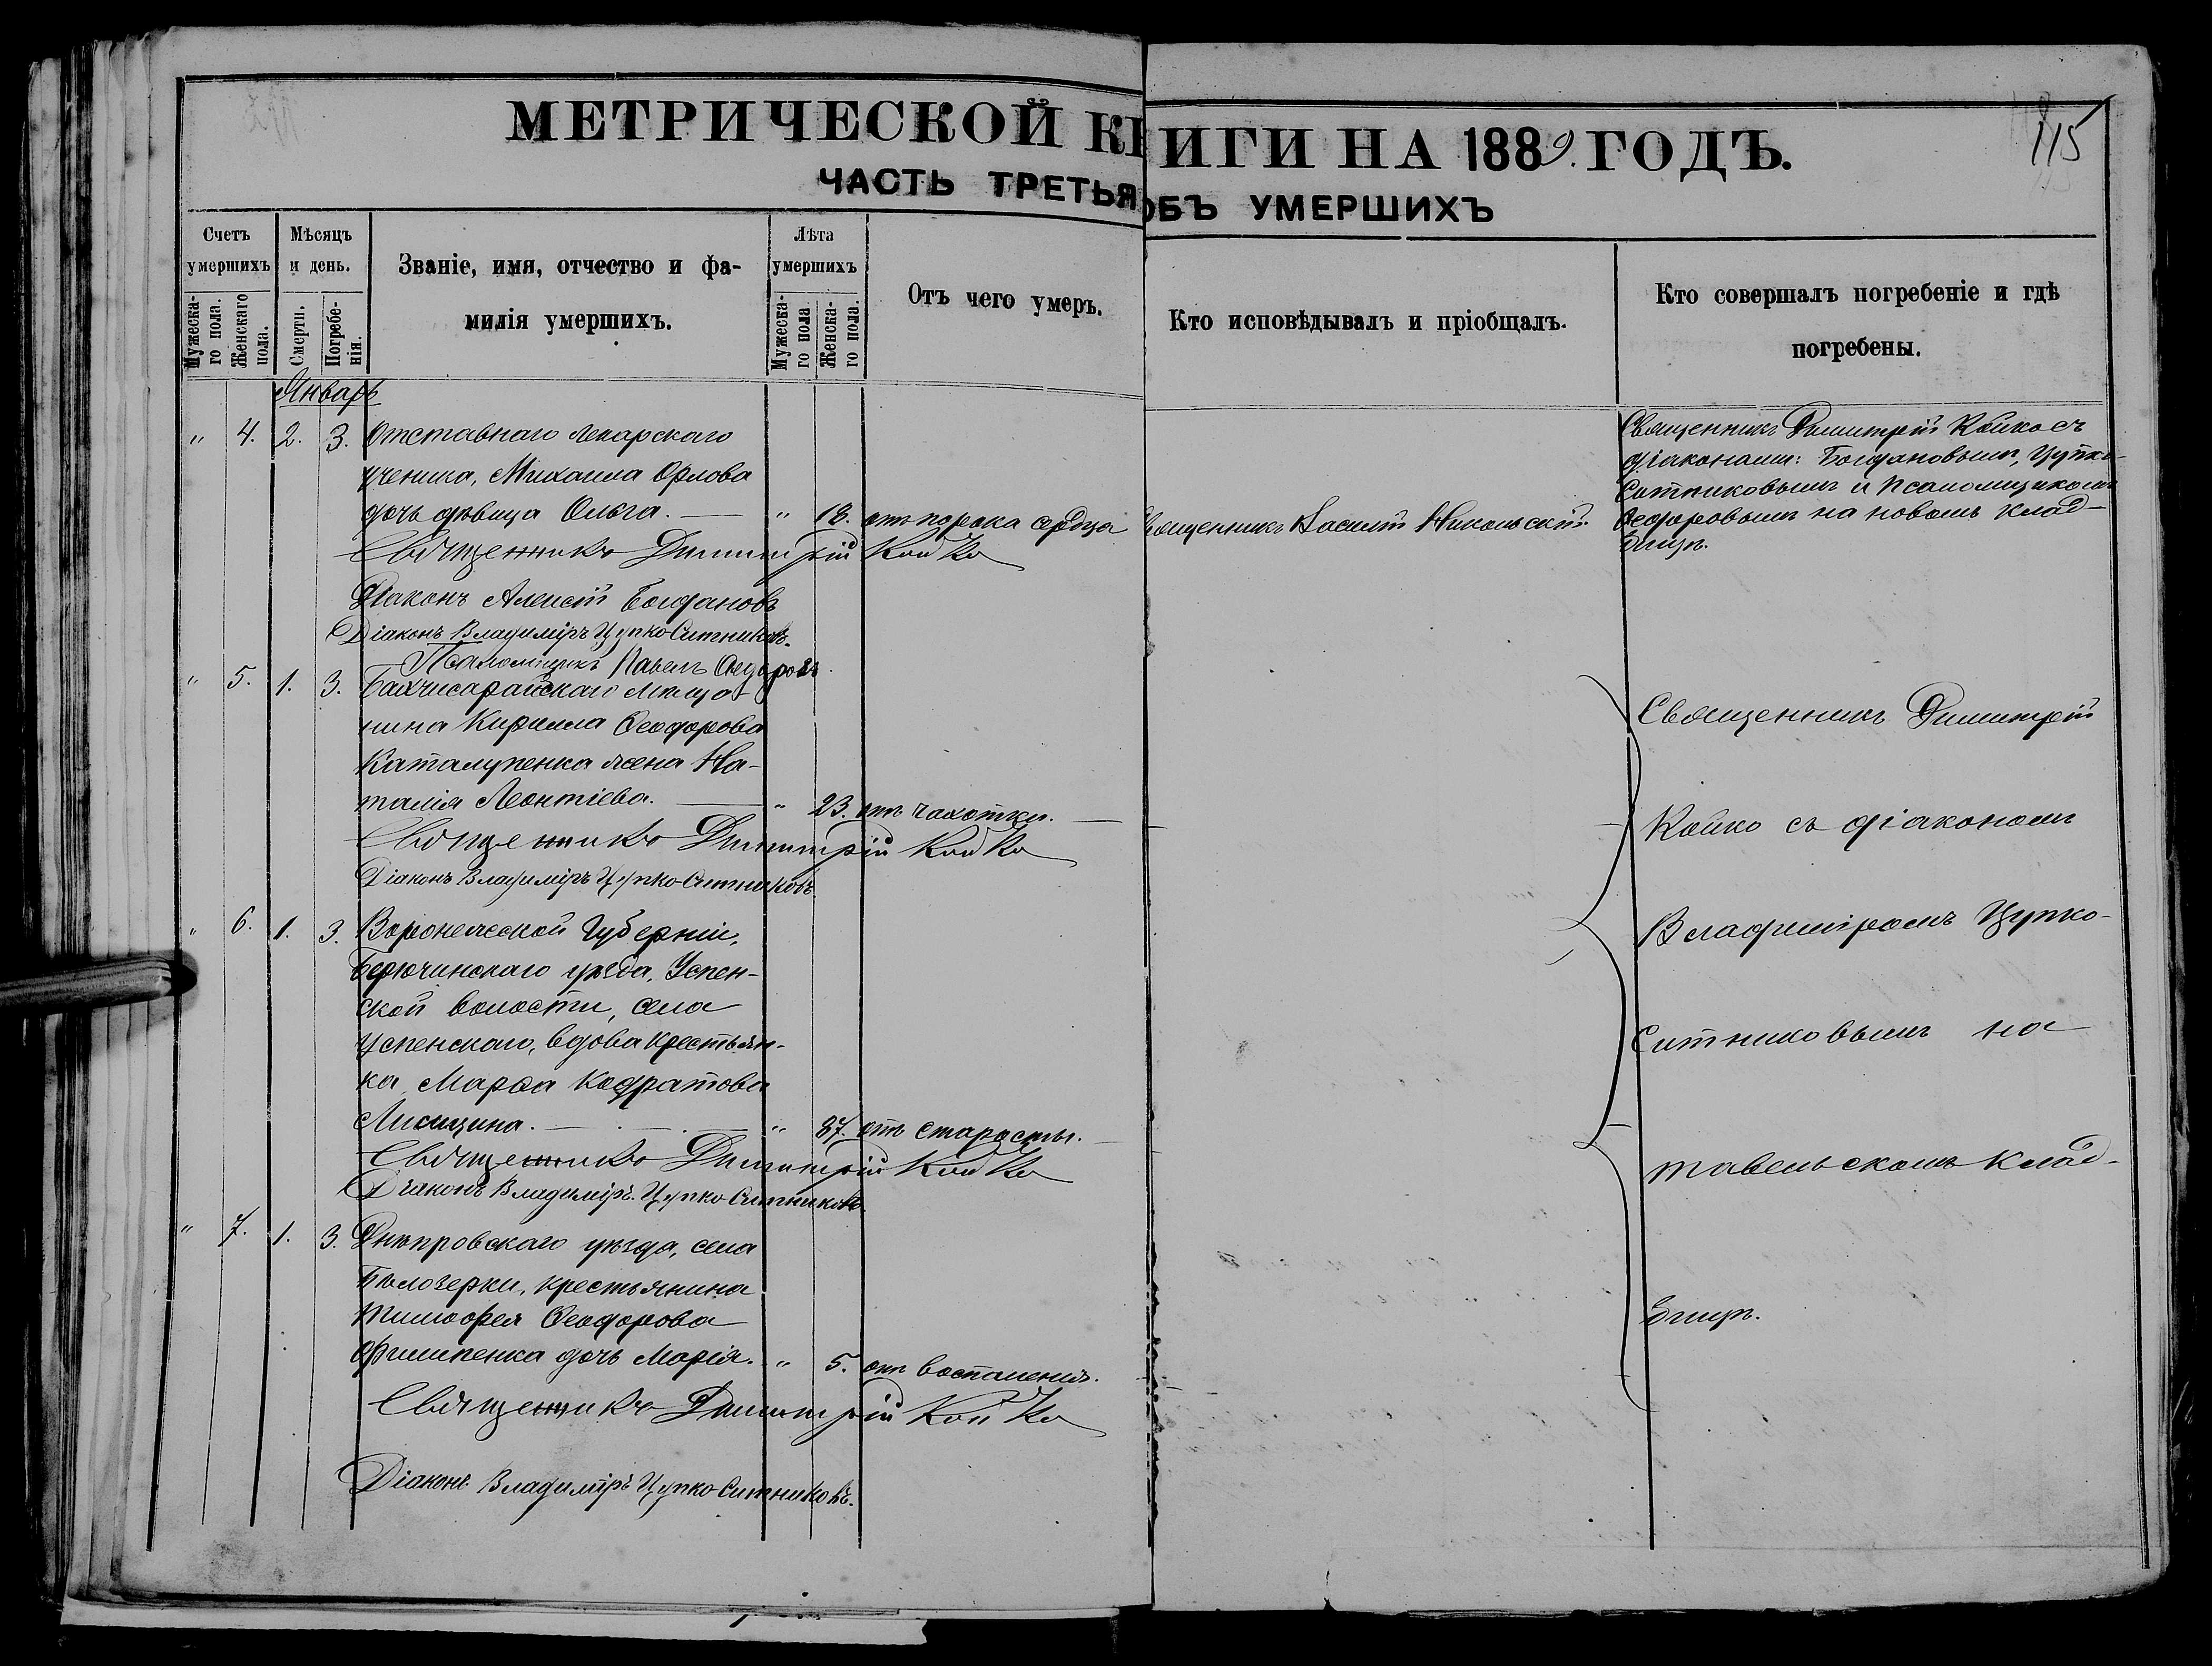 115
МЕТРИЧЕСКОЙ КНИГИ НА 1889. ГОДЪ.
ЧАСТЬ ТРЕТЬЯ ОБЪ УМЕРШИХЪ
Счетъ умершихъ
Мужескаго пола.
Женскаго пола.
Мѣсяцъ и день.
Смерти.
Погребенія.
Званіе, имя, отчество и фамилія умершихъ.
Лѣта умершихъ
Мужескаго пола.
Женскаго пола.
Отъ чего умеръ.
Кто исповѣдывалъ и пріобщалъ.
Кто совершалъ погребеніе и гдѣ
погребены.
Январь
" 4. 2. 3. Отставнаго лекарскаго
ученика, Михаила Орлова
дочь дѣвица Ольга. — " 18. отъ порока сердца
Священникъ Василій Никольскій.
Священникъ Димитрій Койко съ
діаконами: Богдановымъ, Цупко-
Ситниковымъ и псаломщикомъ
Ѳеодоровымъ на новомъ клад-
бищѣ.
Священникъ Димитрій Койко
Діаконъ Алексій Богдановъ
Діаконъ Владиміръ Цупко-Ситниковъ.
Псаломщикъ Павелъ Ѳедоровъ
" 5. 1. 3. Бахчисарайскаго мѣща-
нина Кирилла Ѳеодорова
Каталупенка жена На-
талія Леонтіева. — " 23. отъ чахотки. —
Священникъ Димитрій Койко
Діаконъ Владиміръ Цупко-Ситниковъ
" 6. 1. 3. Воронежской Губерніи,
Берючинскаго уѣзда, Успен-
ской волости, села
Успенскаго, вдова крестьян-
ка, Марѳа Кодратова
Лисицина. — " 87. отъ старости. —
Священникъ Димитрій Койко
Діаконъ Владиміръ Цупко-Ситниковъ
" 7. 1. 3. Днѣпровскаго уѣзда, села
Бѣлозерки, крестьянина
Тимоѳея Ѳеодорова
Филипенка дочь Марія. " 5. отъ воспаленія.
Священникъ Димитрій Койко
Діаконъ Владиміръ Цупко-Ситниковъ.
Священникъ Димитрій
Койко съ діакономъ
Владиміромъ Цупко-
Ситниковымъ на
тавельскомъ клад-
бищѣ.